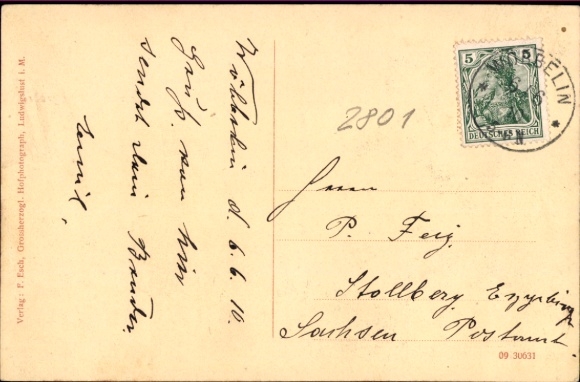 Wöbbelin d. 6.6.10.
Gruß von hier
sendet Dein Bruder
Emil.
Verlag: F. Esch, Grossherzogl. Hofphotograph, Ludwigslust i. M.
5 5
DEUTSCHES REICH
WÖBBELIN
2801
Herrn
P. Feig
Stollberg Erzgebirge
Sachsen Postamt
09 30631